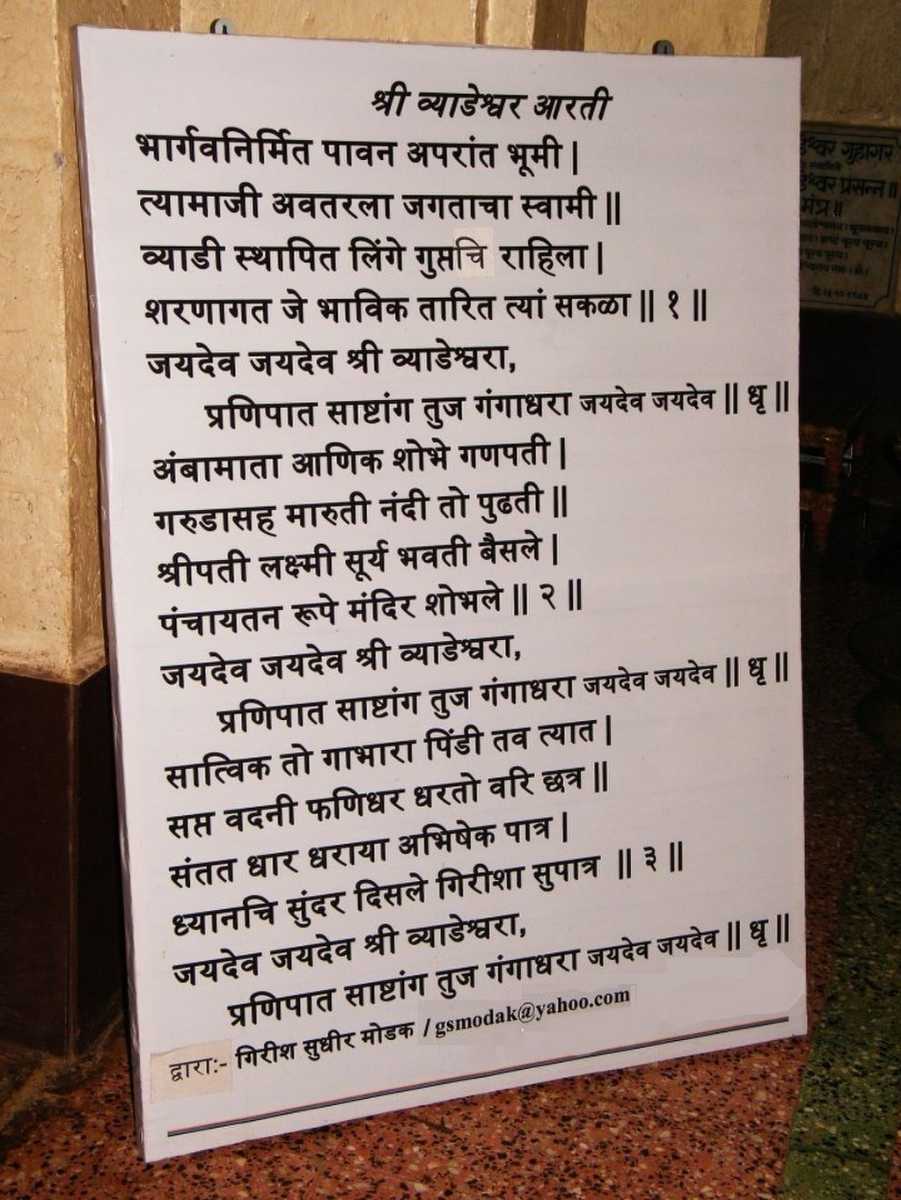 श्री व्याडेश्वर आरती
भार्गवनिर्मित पावन अपरांत भूमी |
त्यामाजी अवतरला जगताचा स्वामी ||
व्याडी स्थापित लिंगे गुप्तचि राहिला |
शरणागत जे भाविक तारित त्यां सकळा || १ ||
जयदेव जयदेव श्री व्याडेश्वरा,
प्रणिपात साष्टांग तुज गंगाधरा जयदेव जयदेव || धृ ||
अंबामाता आणिक शोभे गणपती |
गरुडासह मारुती नंदी तो पुढती ||
श्रीपती लक्ष्मी सूर्य भवती बैसले |
पंचायतन रूपे मंदिर शोभले || २ ||
जयदेव जयदेव श्री व्याडेश्वरा,
प्रणिपात साष्टांग तुज गंगाधरा जयदेव जयदेव || धृ ||
सात्विक तो गाभारा पिंडी तव त्यात |
सप्त वदनी फणिधर धरतो वरि छत्र ||
संतत धार धराया अभिषेक पात्र |
ध्यानचि सुंदर दिसले गिरीशा सुपात्र || ३ ||
जयदेव जयदेव श्री व्याडेश्वरा,
प्रणिपात साष्टांग तुज गंगाधरा जयदेव जयदेव || धृ ||
द्वारा:- गिरीश सुधीर मोडक / gsmodak@yahoo.com
गुहागर
प्रसन्न ||
मंत्र ||